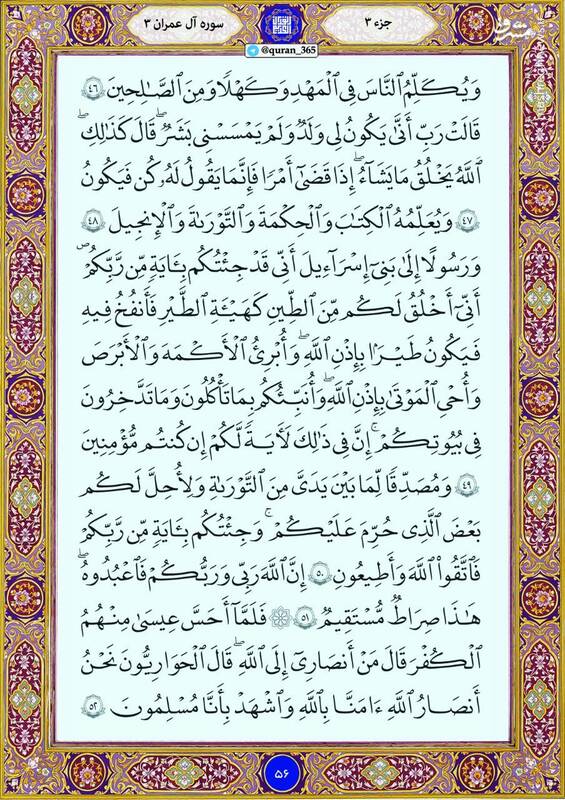 جزء ۳
سوره آل عمران ۳
@quran_365
وَيُكَلِّمُ ٱلنَّاسَ فِي ٱلْمَهْدِ وَكَهْلًا وَمِنَ ٱلصَّـٰلِحِينَ ٤٦
قَالَتْ رَبِّ أَنَّىٰ يَكُونُ لِي وَلَدٌ وَلَمْ يَمْسَسْنِي بَشَرٌ ۖ قَالَ كَذَٰلِكِ
ٱللَّهُ يَخْلُقُ مَا يَشَآءُ ۚ إِذَا قَضَىٰٓ أَمْرًا فَإِنَّمَا يَقُولُ لَهُۥ كُن فَيَكُونُ
٤٧ وَيُعَلِّمُهُ ٱلْكِتَـٰبَ وَٱلْحِكْمَةَ وَٱلتَّوْرَىٰةَ وَٱلْإِنجِيلَ ٤٨
وَرَسُولًا إِلَىٰ بَنِيٓ إِسْرَٰٓءِيلَ أَنِّي قَدْ جِئْتُكُم بِـَٔايَةٍ مِّن رَّبِّكُمْ ۖ
أَنِّيٓ أَخْلُقُ لَكُم مِّنَ ٱلطِّينِ كَهَيْـَٔةِ ٱلطَّيْرِ فَأَنفُخُ فِيهِ
فَيَكُونُ طَيْرًۢا بِإِذْنِ ٱللَّهِ ۖ وَأُبْرِئُ ٱلْأَكْمَهَ وَٱلْأَبْرَصَ
وَأُحْيِ ٱلْمَوْتَىٰ بِإِذْنِ ٱللَّهِ ۖ وَأُنَبِّئُكُم بِمَا تَأْكُلُونَ وَمَا تَدَّخِرُونَ
فِي بُيُوتِكُمْ ۚ إِنَّ فِي ذَٰلِكَ لَـَٔايَةً لَّكُمْ إِن كُنتُم مُّؤْمِنِينَ
٤٩ وَمُصَدِّقًا لِّمَا بَيْنَ يَدَيَّ مِنَ ٱلتَّوْرَىٰةِ وَلِأُحِلَّ لَكُم
بَعْضَ ٱلَّذِي حُرِّمَ عَلَيْكُمْ ۚ وَجِئْتُكُم بِـَٔايَةٍ مِّن رَّبِّكُمْ
فَٱتَّقُوا۟ ٱللَّهَ وَأَطِيعُونِ ٥٠ إِنَّ ٱللَّهَ رَبِّي وَرَبُّكُمْ فَٱعْبُدُوهُ ۗ
هَـٰذَا صِرَٰطٌ مُّسْتَقِيمٌ ٥١ ۞ فَلَمَّآ أَحَسَّ عِيسَىٰ مِنْهُمُ
ٱلْكُفْرَ قَالَ مَنْ أَنصَارِيٓ إِلَى ٱللَّهِ ۖ قَالَ ٱلْحَوَارِيُّونَ نَحْنُ
أَنصَارُ ٱللَّهِ ءَامَنَّا بِٱللَّهِ وَٱشْهَدْ بِأَنَّا مُسْلِمُونَ ٥٢
۵۶